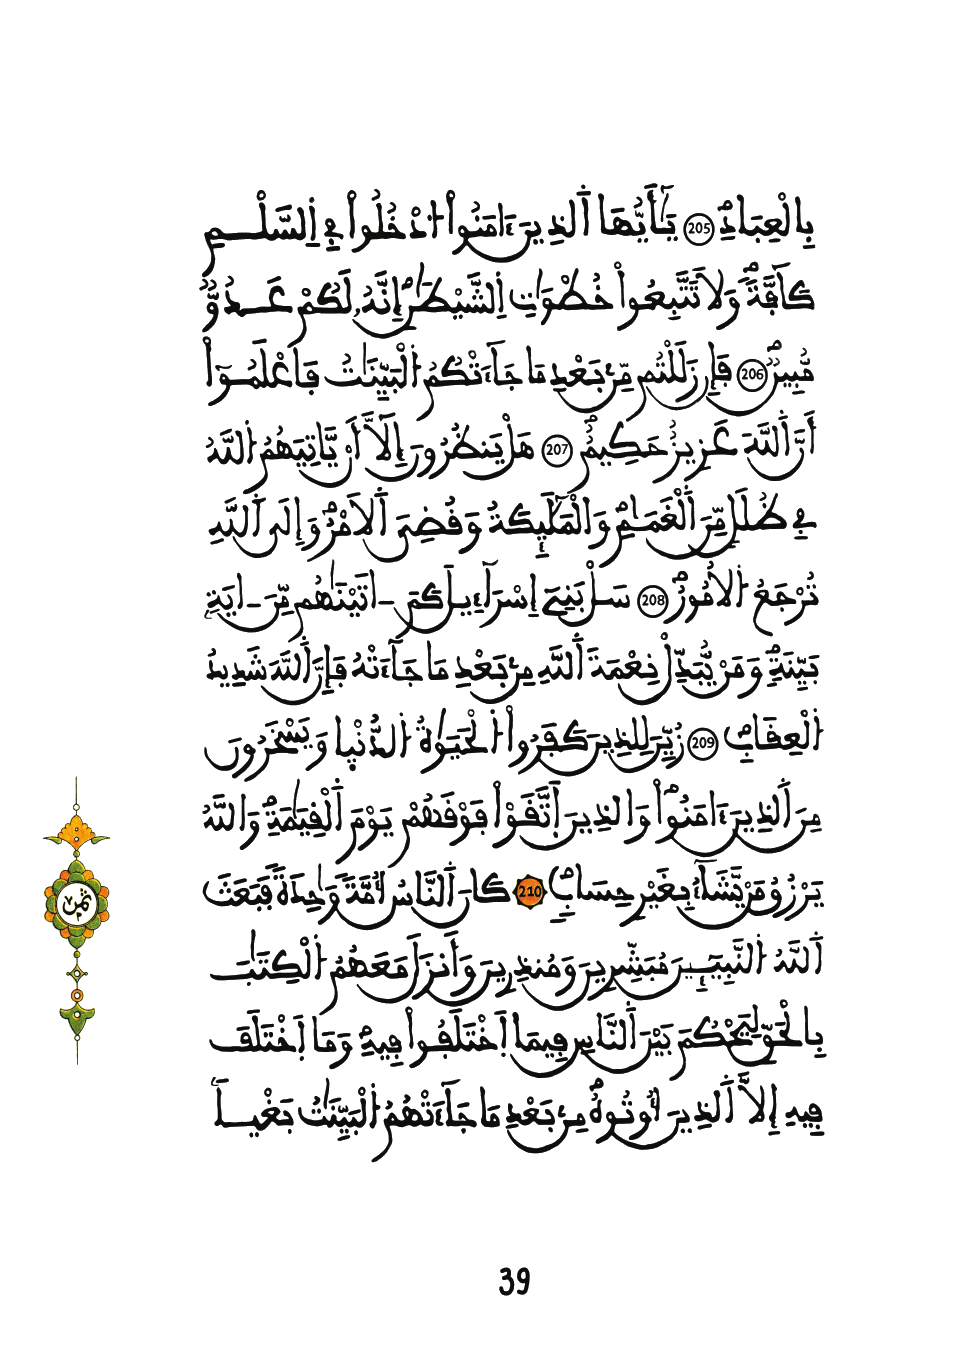 بِالْعِبَادِ 205 يَٰٓأَيُّهَا اَ۬لذِينَ ءَامَنُواْ اُ۟دْخُلُواْ فِي اِ۬لسَّلْمِ
كَآفَّةٗ وَلَا تَتَّبِعُواْ خُطْوَٰتِ اِ۬لشَّيْطَٰنِ إِنَّهُۥ لَكُمْ عَدُوّٞ
مُّبِينٞ 206 فَإِن زَلَلْتُم مِّنۢ بَعْدِ مَا جَآءَتْكُمُ اُ۬لْبَيِّنَٰتُ فَاعْلَمُوٓاْ
أَنَّ اَ۬للَّهَ عَزِيزٌ حَكِيمٌ 207 هَلْ يَنظُرُونَ إِلَّآ أَنْ يَّاتِيَهُمُ اُ۬للَّهُ
فِي ظُلَلٖ مِّنَ اَ۬لْغَمَٰمِ وَالْمَلَٰٓئِكَةُ وَقُضِيَ اَ۬لَامْرُ وَإِلَى اَ۬للَّهِ
تُرْجَعُ اُ۬لُامُورُ 208 سَلْ بَنِےٓ إِسْرَآءِيلَ كَمَ اٰتَيْنَٰهُم مِّنَ اٰيَةِۢ
بَيِّنَةٖ وَمَنْ يُّبَدِّلْ نِعْمَةَ اَ۬للَّهِ مِنۢ بَعْدِ مَا جَآءَتْهُ فَإِنَّ اَ۬للَّهَ شَدِيدُ
اُ۬لْعِقَابِ 209 زُيِّنَ لِلذِينَ كَفَرُواْ اُ۬لْحَيَوٰةُ اُ۬لدُّنْيا وَيَسْخَرُونَ
مِنَ اَ۬لذِينَ ءَامَنُواْ وَالذِينَ اَ۪تَّقَوْاْ فَوْقَهُمْ يَوْمَ اَ۬لْقِيَٰمَةِ وَاللَّهُ
يَرْزُقُ مَنْ يَّشَآءُ بِغَيْرِ حِسَابٖ 210 كَانَ اَ۬لنَّاسُ أُمَّةٗ وَٰحِدَةٗ فَبَعَثَ
اَ۬للَّهُ اُ۬لنَّبِيٓـِٕۧنَ مُبَشِّرِينَ وَمُنذِرِينَ وَأَنزَلَ مَعَهُمُ اُ۬لْكِتَٰبَ
بِالْحَقِّ لِيَحْكُمَ بَيْنَ اَ۬لنَّاسِ فِيمَا اَ۪خْتَلَفُواْ فِيهِ وَمَا اَ۪خْتَلَفَ
فِيهِ إِلَّا اَ۬لذِينَ أُوتُوهُ مِنۢ بَعْدِ مَا جَآءَتْهُمُ اُ۬لْبَيِّنَٰتُ بَغْياَۢ
ثمن
39